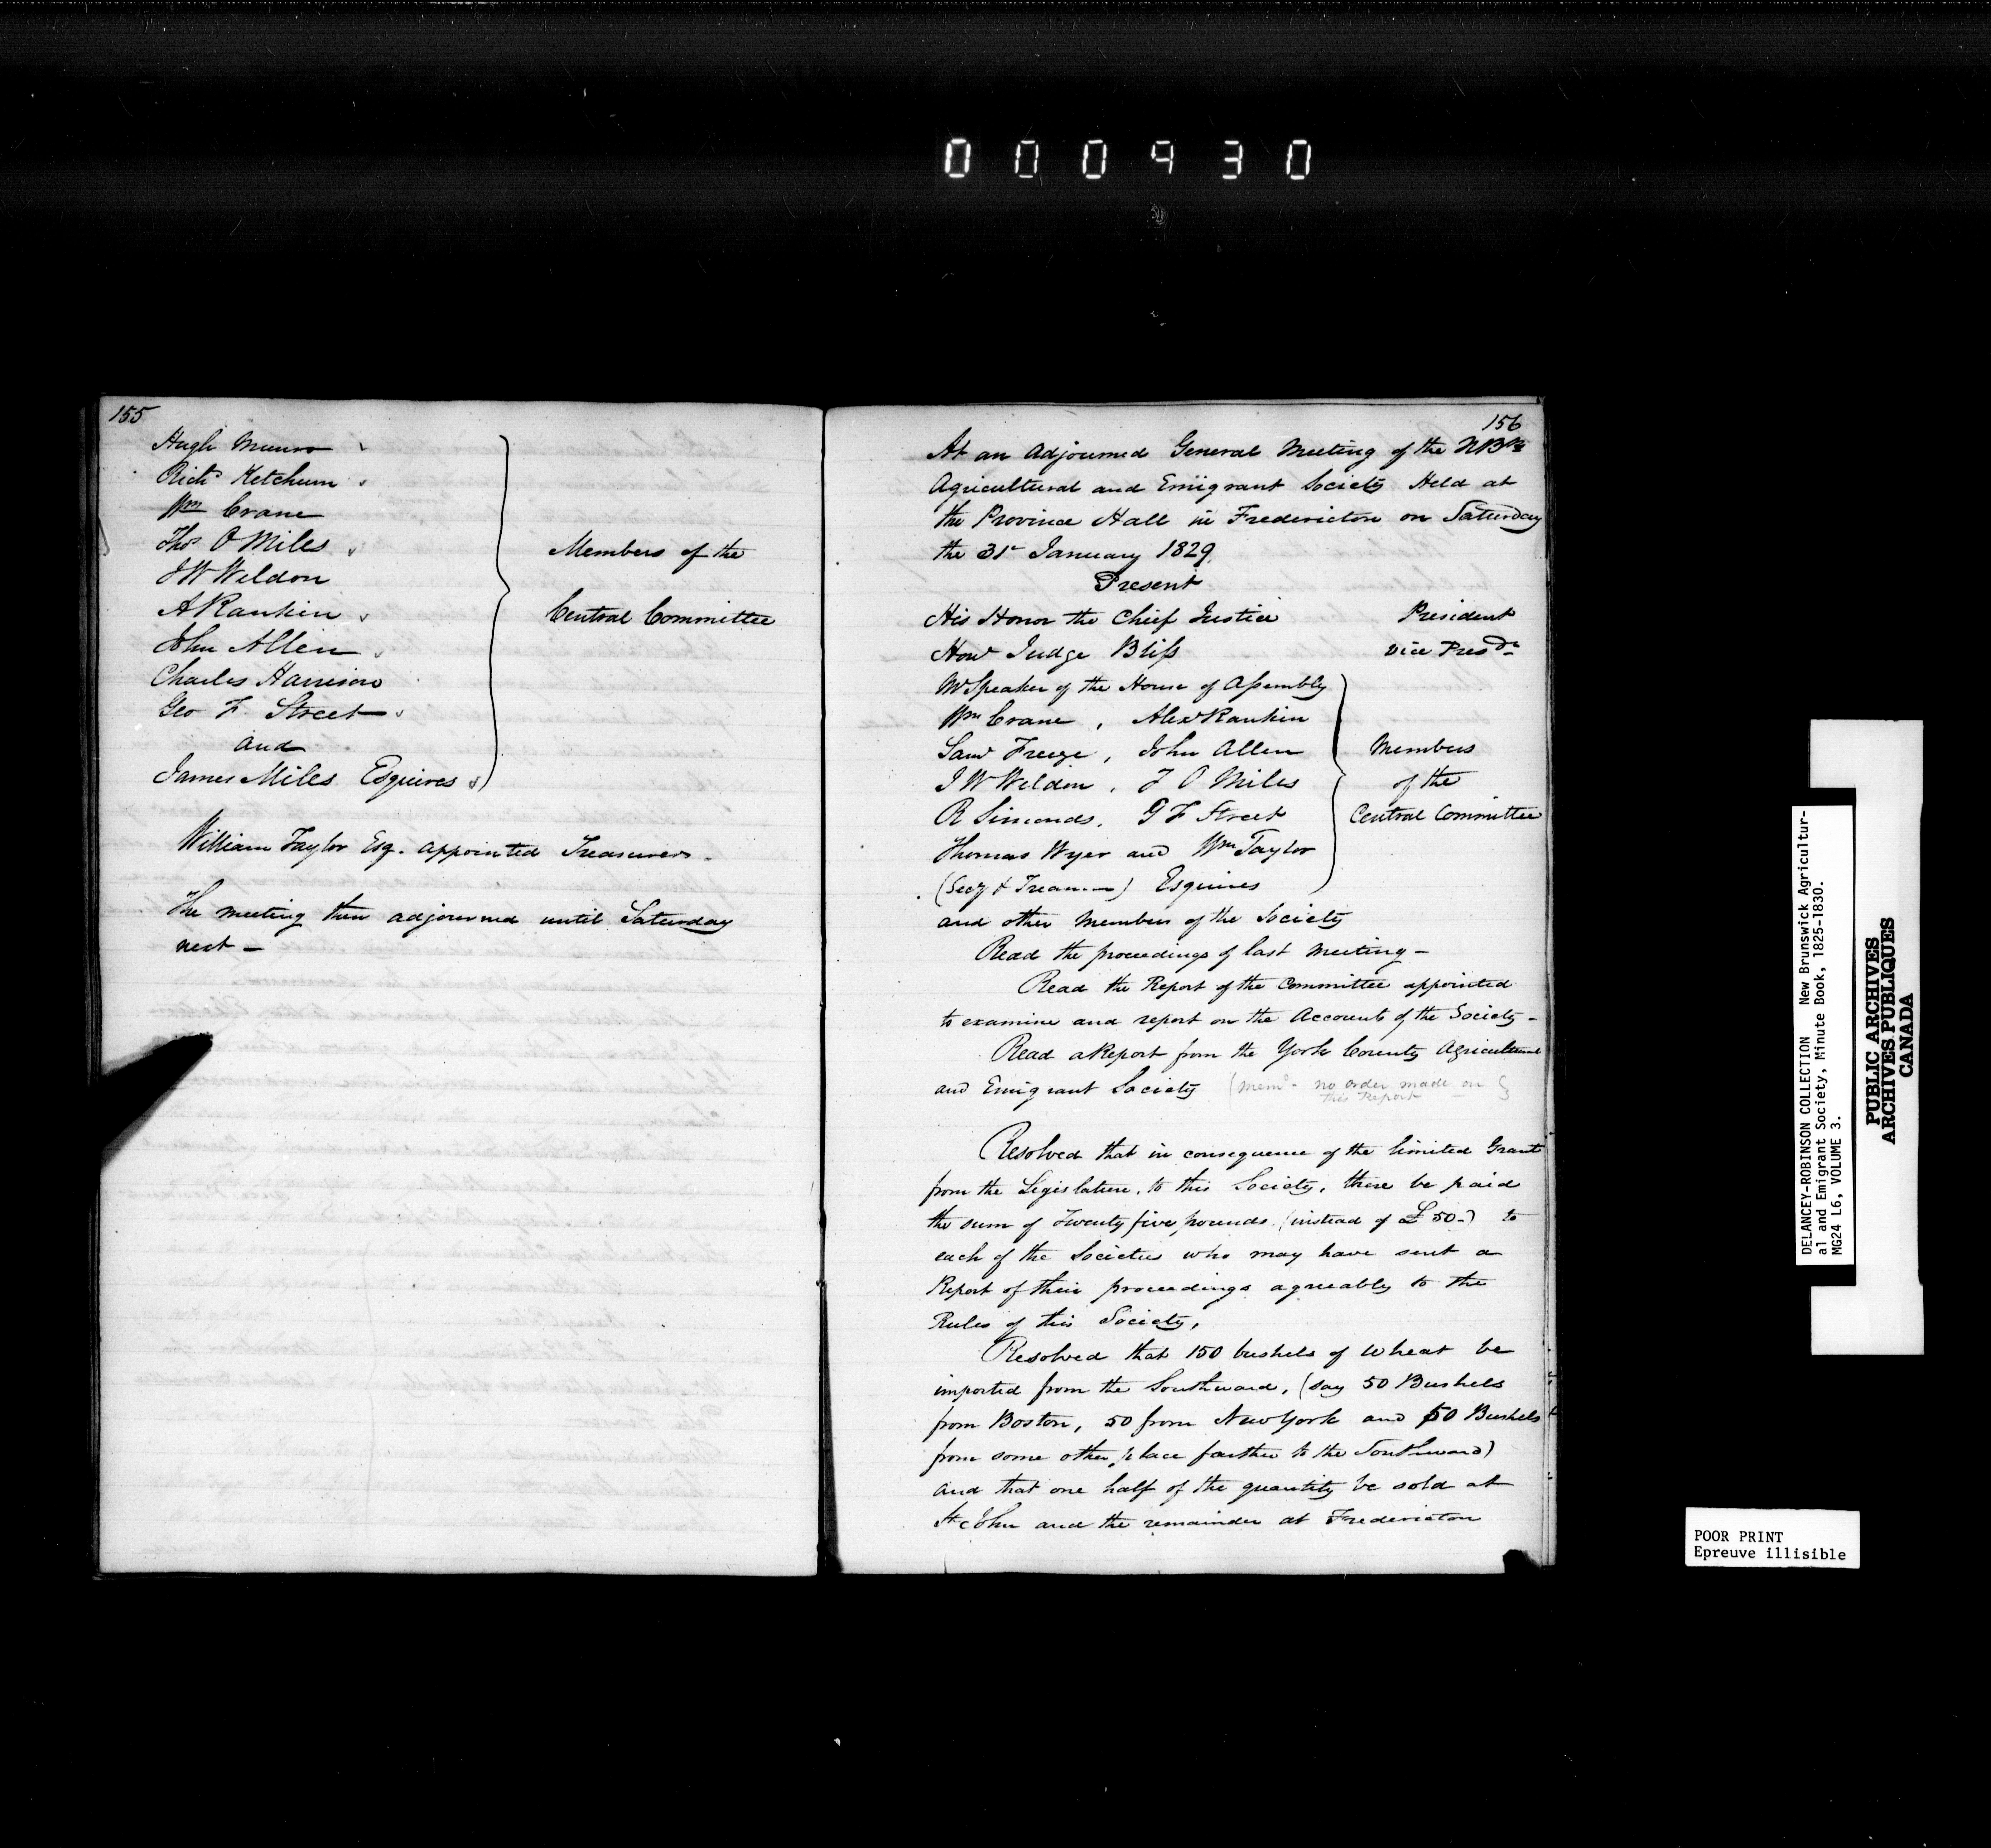 000930
155
Hugh Munro
Richd Ketchum
Wm Crane
Thos O Miles
J W Weldon
A Rankin
John Allen
Charles Harrison
Geo F. Street
and
James Miles Esquires
Members of the
Central Committee
William Taylor Esq. appointed Treasurer.
The meeting then adjourned until Saturday
next —
156
At an adjourned General Meeting of the NBk
Agricultural and Emigrant Society Held at
the Province Hall in Fredericton on Saturday
the 31st January 1829
Present
His Honor the Chief Justice President
Honl Judge Bliss Vice Presdt
Mr Speaker of the House of Assembly
Wm Crane, Alexr Rankin
Saml Freeze, John Allen
J W Weldon, T O Miles
R Simonds, G F Street
Thomas Wyer and Wm Taylor
(Secy & Treasurer) Esquires
Members
of the
Central Committee
and other Members of the Society
Read the proceedings of last Meeting —
Read the Report of the Committee appointed
to examine and report on the Accounts of the Society —
Read a Report from the York County Agricultural
and Emigrant Society (memo - no order made on
this Report
Resolved that in consequence of the limited Grant
from the Legislature, to this Society, there be paid
the sum of Twenty five pounds (instead of £50-) to
each of the Societies who may have sent a
Report of their proceedings agreeably to the
Rules of this Society,
Resolved that 150 bushels of Wheat be
imported from the Southward, (say 50 Bushels
from Boston, 50 from New York and 50 Bushels
from some other place farther to the Southward)
and that one half of the quantity be sold at
St John and the remainder at Fredericton
DELANCEY-ROBINSON COLLECTION New Brunswick Agricultur-
al and Emigrant Society, Minute Book, 1825-1830.
MG24 L6, VOLUME 3.
PUBLIC ARCHIVES
ARCHIVES PUBLIQUES
CANADA
POOR PRINT
Epreuve illisible